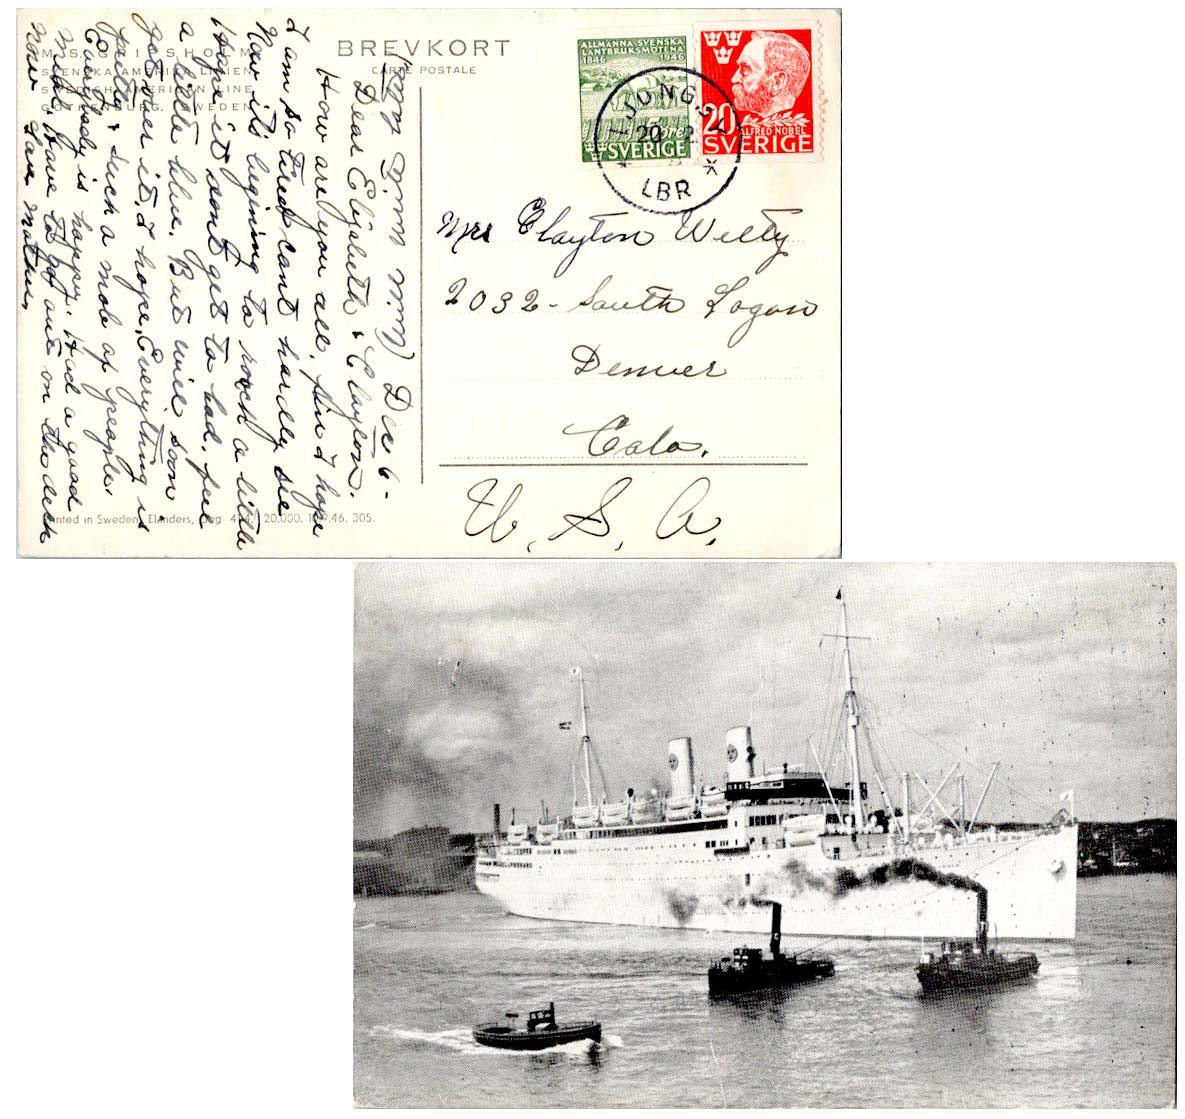 M.S. GRIPSHOLM
SVENSKA AMERIKA LINIEN
SWEDISH AMERICAN LINE
GOTHENBURG, SWEDEN
BREVKORT
CARTE POSTALE
ALLMÄNNA SVENSKA
LANTBRUKSMÖTENA
1846 1946
5 öre
SVERIGE
20
ALFRED NOBEL
SVERIGE
LJUNGS
20 2
LBR
Dec 6 -
Dear Elizabeth & Clayton.
How are you all, fin I hope
I am so tired cant hardly see
Now its begining to rock a little
Hope it dont get to bad. feel
a little blue. But will soon
get over it, I hope. Everything is
filled & such a mob of people.
Everybody is happy. Had a good
meal. Have to go out on the deck
now Love Mother,
Mrs Clayton Welty
2032 - South Logan
Denver
Colo.
U. S. A.
Printed in Sweden, Elanders, Gbg 20.000. 10.9.46. 305.